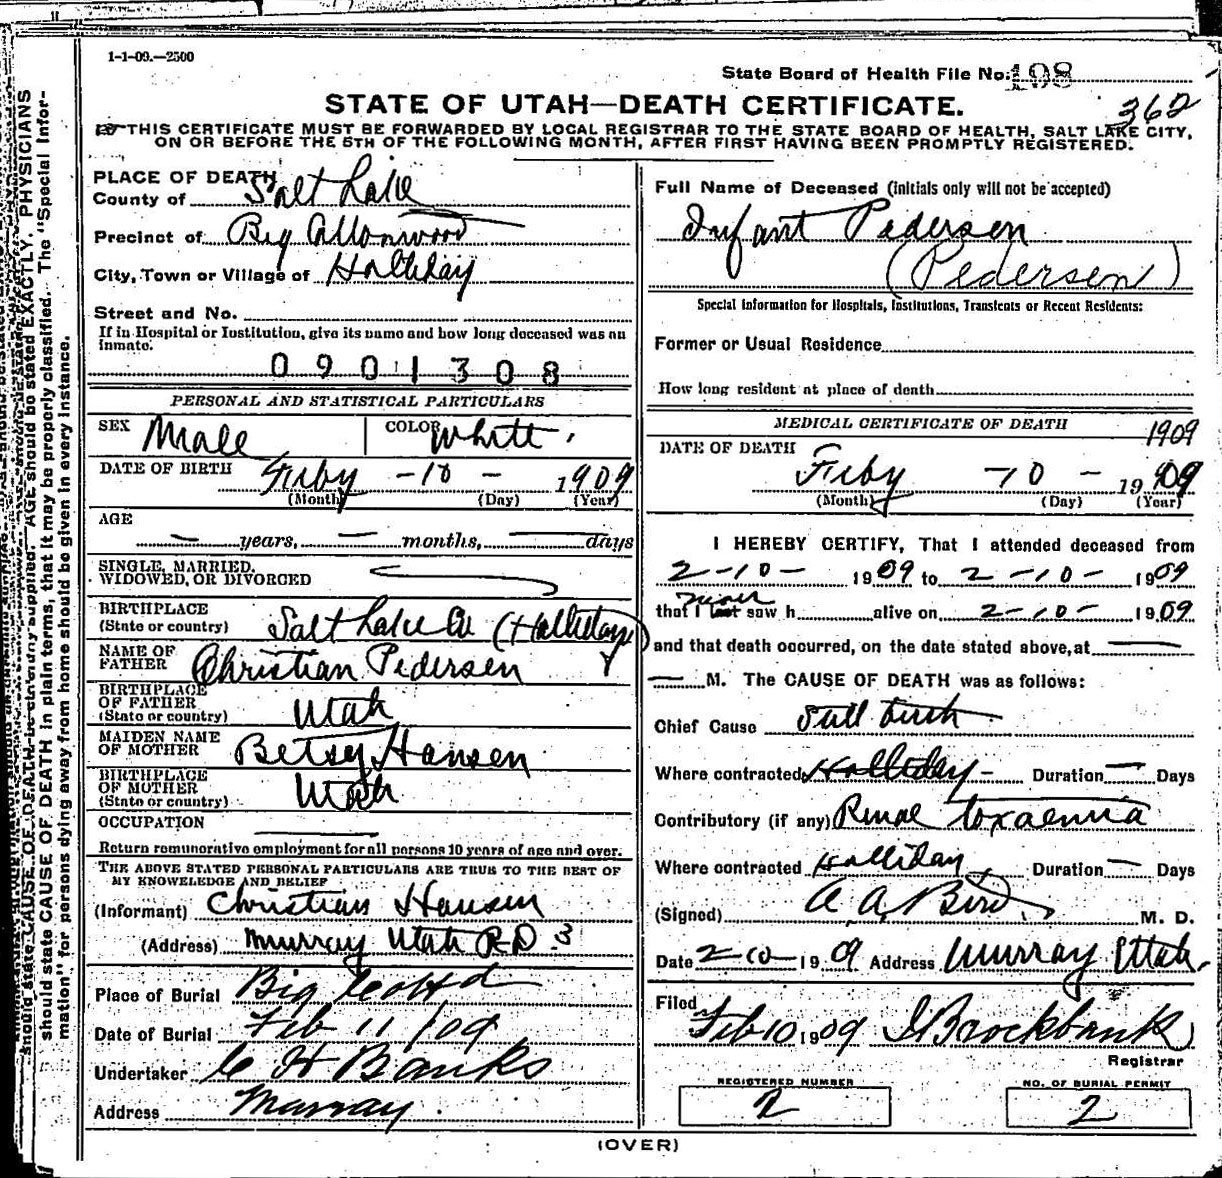 1-1-09.—2500
State Board of Health File No. 198
362
STATE OF UTAH—DEATH CERTIFICATE.
THIS CERTIFICATE MUST BE FORWARDED BY LOCAL REGISTRAR TO THE STATE BOARD OF HEALTH, SALT LAKE CITY,
ON OR BEFORE THE 5TH OF THE FOLLOWING MONTH, AFTER FIRST HAVING BEEN PROMPTLY REGISTERED.
PLACE OF DEATH
County of Salt Lake
Precinct of Big Cottonwood
City, Town or Village of Holliday
Street and No.
If in Hospital or Institution, give its name and how long deceased was an
inmate.
0901308
PERSONAL AND STATISTICAL PARTICULARS
SEX Male COLOR White
DATE OF BIRTH Feby - 10 - 1909
(Month) (Day) (Year)
AGE
— years, — months, — days
SINGLE, MARRIED,
WIDOWED, OR DIVORCED
BIRTHPLACE
(State or country) Salt Lake Co (Holliday)
NAME OF
FATHER Christian Pedersen
BIRTHPLACE
OF FATHER
(State or country) Utah
MAIDEN NAME
OF MOTHER Betsy Hansen
BIRTHPLACE
OF MOTHER
(State or country) Utah
OCCUPATION —
Return remunerative employment for all persons 10 years of age and over.
THE ABOVE STATED PERSONAL PARTICULARS ARE TRUE TO THE BEST OF
MY KNOWLEDGE AND BELIEF
(Informant) Christian Hansen
(Address) Murray Utah R.D. 3
Place of Burial Big Cottd
Date of Burial Feb 11 / 09
Undertaker C H Banks
Address Murray.
Full Name of Deceased (initials only will not be accepted)
Infant Pedersen
(Pedersen)
Special Information for Hospitals, Institutions, Transients or Recent Residents:
Former or Usual Residence
How long resident at place of death
MEDICAL CERTIFICATE OF DEATH
1909
DATE OF DEATH
Feby - 10 - 1909
(Month) (Day) (Year)
I HEREBY CERTIFY, That I attended deceased from
2-10- 1909 to 2-10- 1909
never
that I last saw h alive on 2-10- 1909
and that death occurred, on the date stated above, at —
— M. The CAUSE OF DEATH was as follows:
Chief Cause Still birth
Where contracted Holliday - Duration — Days
Contributory (if any) Renal toxaemia
Where contracted Holliday Duration — Days
(Signed) A. A. Bird, M. D.
Date 2-10- 1909 Address Murray Utah.
Filed
Feb 10 1909 Brockbank
Registrar
REGISTERED NUMBER
2
NO. OF BURIAL PERMIT
2
(OVER)
should state CAUSE OF DEATH in plain terms, that it may be properly classified. The "Special Infor-
mation" for persons dying away from home should be given in every instance.
AGE should be stated EXACTLY. PHYSICIANS